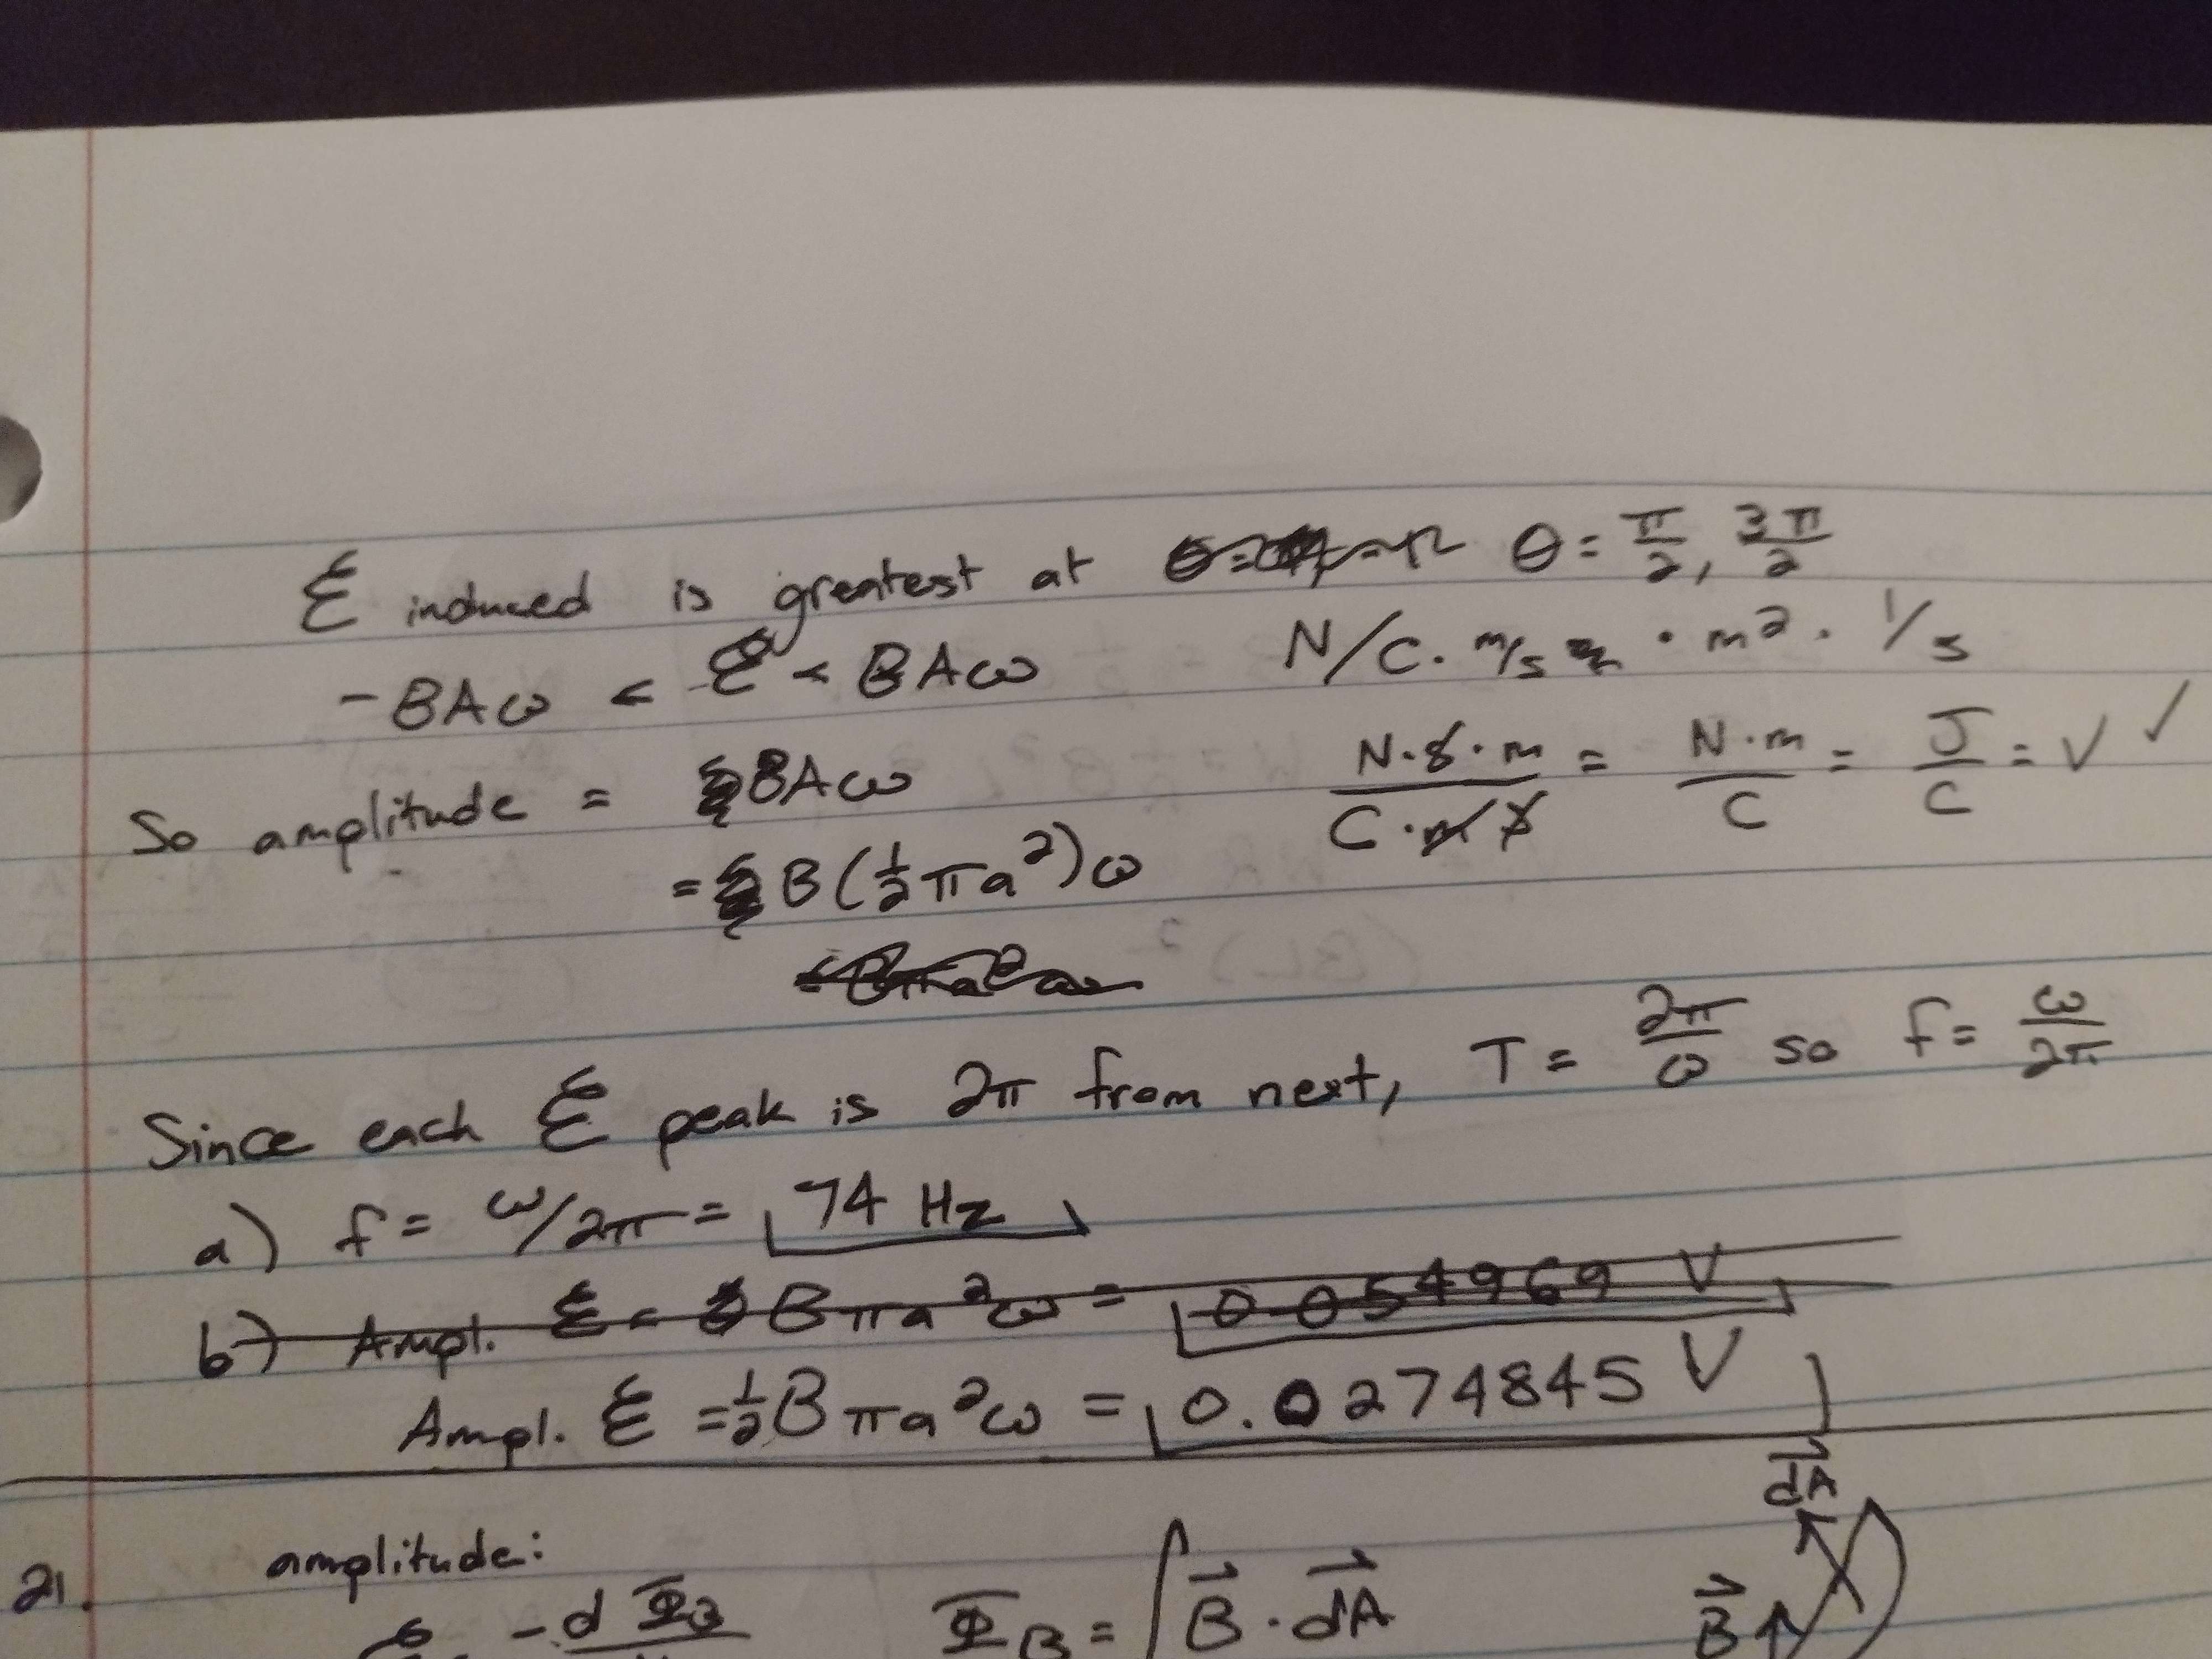 ℰ induced is greatest at θ = π/2, 3π/2
-BAω < ℰ < BAω N/C · m/s · m² · 1/s
So amplitude = BAω N·s·m / C·m s = N·m / C = J / C = V ✓
= B(½πa²)ω
Bπa²ω
Since each ℰ peak is 2π from next, T = 2π/ω so f = ω/2π
a) f = ω/2π = 74 Hz
b) Ampl. ℰ = Bπa²ω = 0.054969 V
Ampl. ℰ = ½Bπa²ω = 0.0274845 V
dA
21. amplitude:
ℰ -dΦB Φ_B = ∫B⃗·dA⃗ B⃗